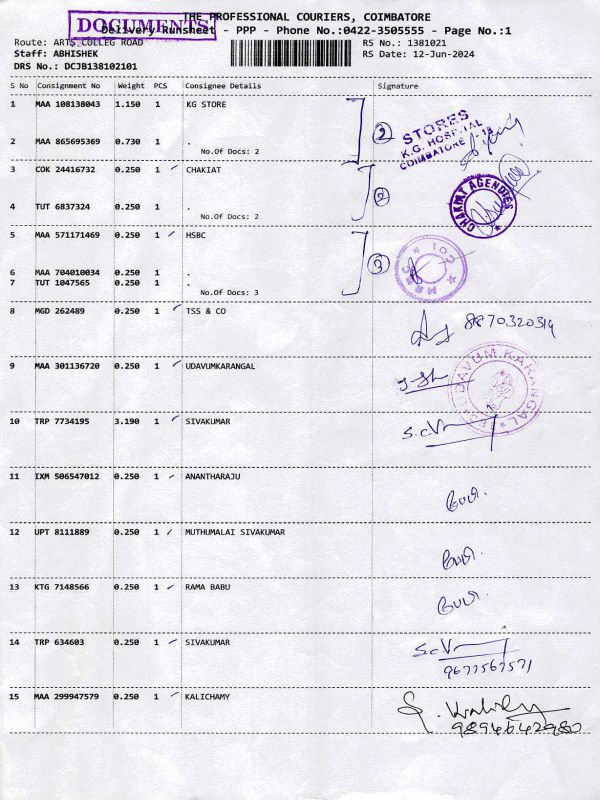 DOCUMENTS
THE PROFESSIONAL COURIERS, COIMBATORE
Delivery Runsheet - PPP - Phone No.:0422-3505555 - Page No.:1
Route: ARTS COLLEG ROAD RS No.: 1381021
Staff: ABHISHEK RS Date: 12-Jun-2024
DRS No.: DCJB138102101
S No Consignment No Weight PCS Consignee Details Signature
1 MAA 108138043 1.150 1 KG STORE
STORES
K.G. HOSPITAL
COIMBATORE - 18
2
2 MAA 865695369 0.730 1 .
No.Of Docs: 2
3 COK 24416732 0.250 1 CHAKIAT
CHAKIAT AGENCIES
2
4 TUT 6837324 0.250 1 .
No.Of Docs: 2
5 MAA 571171469 0.250 1 HSBC
3
6 MAA 704010034 0.250 1 .
7 TUT 1047565 0.250 1 .
No.Of Docs: 3
8 MGD 262489 0.250 1 TSS & CO
8870320314
9 MAA 301136720 0.250 1 UDAVUMKARANGAL
UDAVUM KARANGAL
10 TRP 7734195 3.190 1 SIVAKUMAR
11 IXM 506547012 0.250 1 ANANTHARAJU
12 UPT 8111889 0.250 1 MUTHUMALAI SIVAKUMAR
13 KTG 7148566 0.250 1 RAMA BABU
14 TRP 634603 0.250 1 SIVAKUMAR
9677567571
15 MAA 299947579 0.250 1 KALICHAMY
9894642980